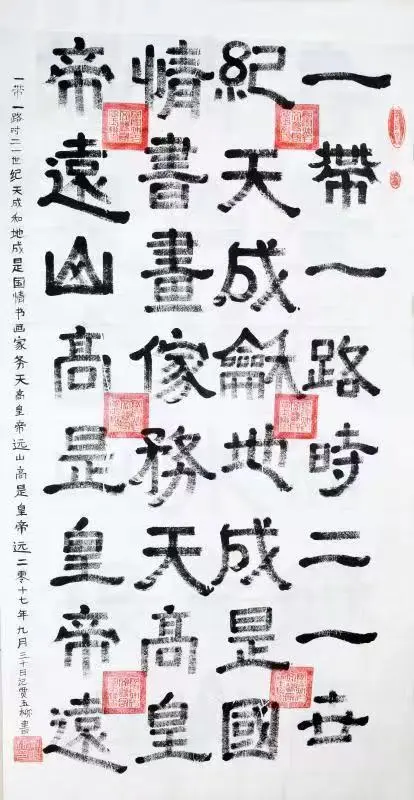 一帶一路時二一世
紀天成龢地成昰國
情書畫傢務天髙皇
帝遠山髙昰皇帝遠
一带一路时二一世纪天成和地成是国情书画家务天高皇帝远山高是皇帝远二零十七年九月三十日记贾五柳書